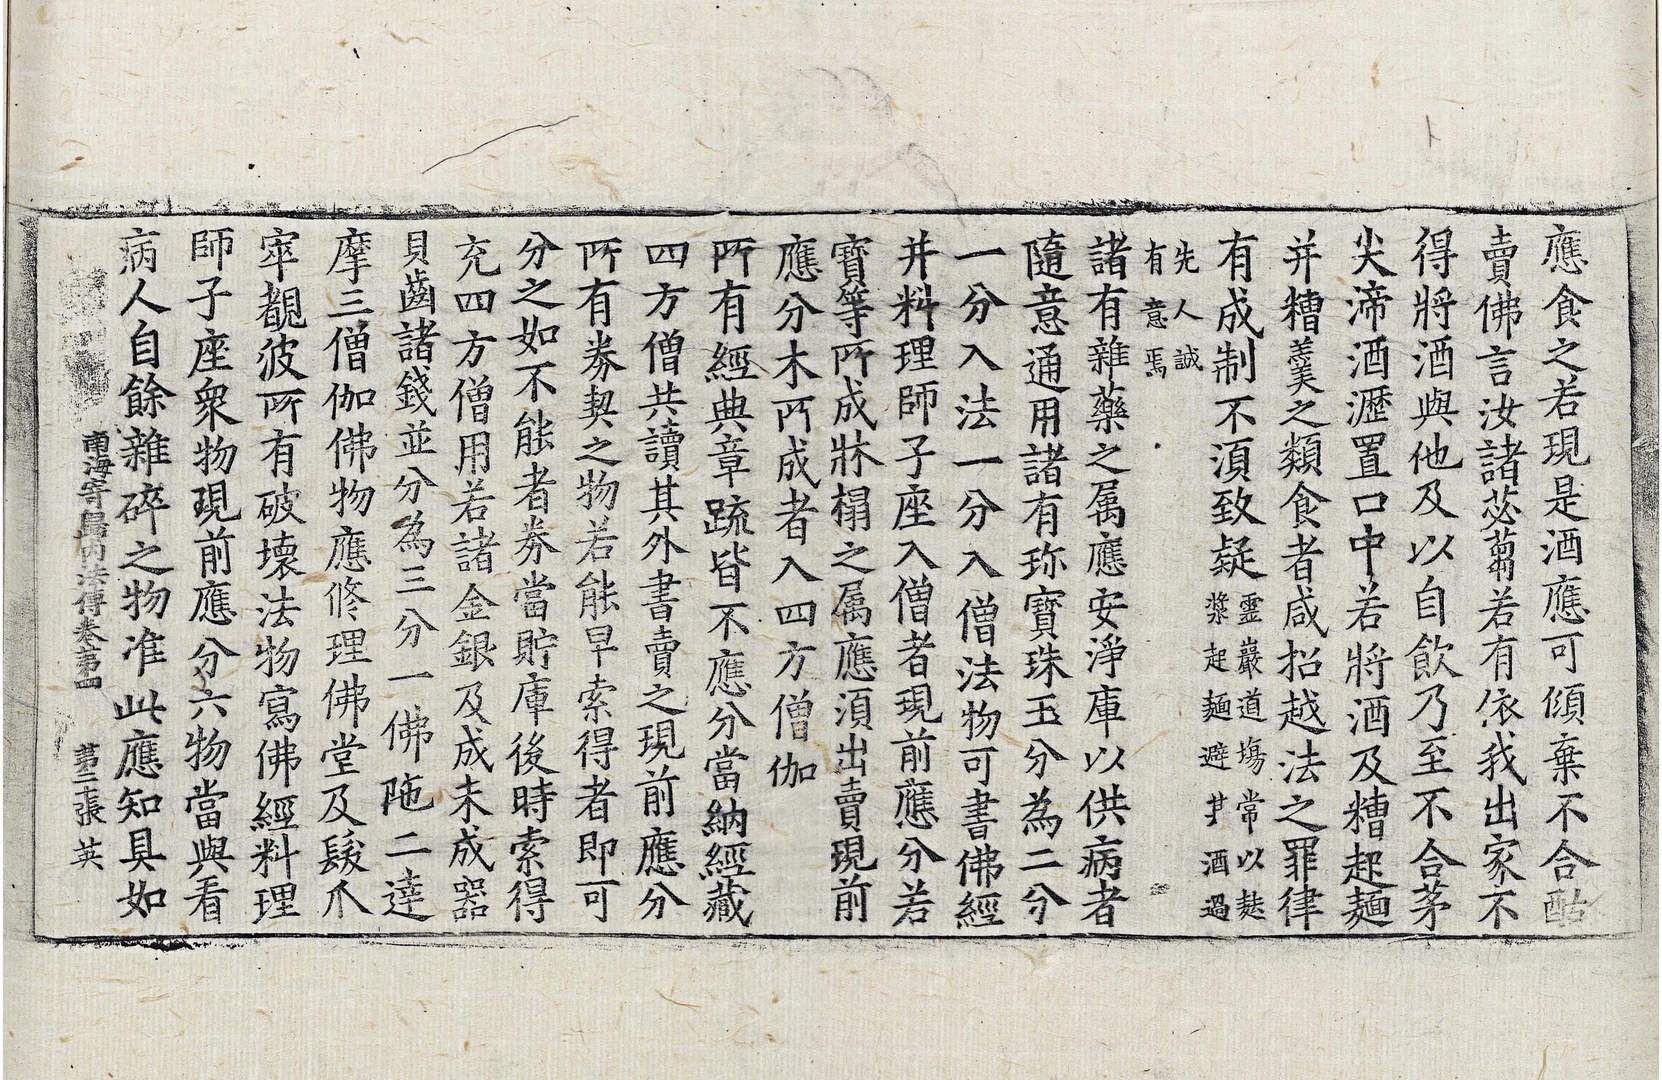 應食之若現是酒應可傾棄不合酤
賣佛言汝諸苾蒭若有依我出家不
得將酒與他及以自飲乃至不合茅
尖渧酒瀝置口中若將酒及糟起麵
并糟羹之類食者咸招越法之罪律
有成制不須致疑靈巖道場常以麩
漿起麵避其酒過
先人誠
有意焉
諸有雜藥之属應安淨庫以供病者
隨意通用諸有珎寶珠玉分為二分
一分入法一分入僧法物可書佛經
并料理師子座入僧者現前應分若
寶等所成牀榻之属應須出賣現前
應分木所成者入四方僧伽
所有經典章疏皆不應分當納經藏
四方僧共讀其外書賣之現前應分
所有券契之物若能早索得者即可
分之如不能者券當貯庫後時索得
充四方僧用若諸金銀及成未成器
貝齒諸錢並分為三分一佛陁二達
摩三僧伽佛物應修理佛堂及髮爪
窣覩彼所有破壞法物寫佛經料理
師子座衆物現前應分六物當與看
病人自餘雜碎之物准此應知具如
南海寄歸内法傳卷第四 第二十張 英